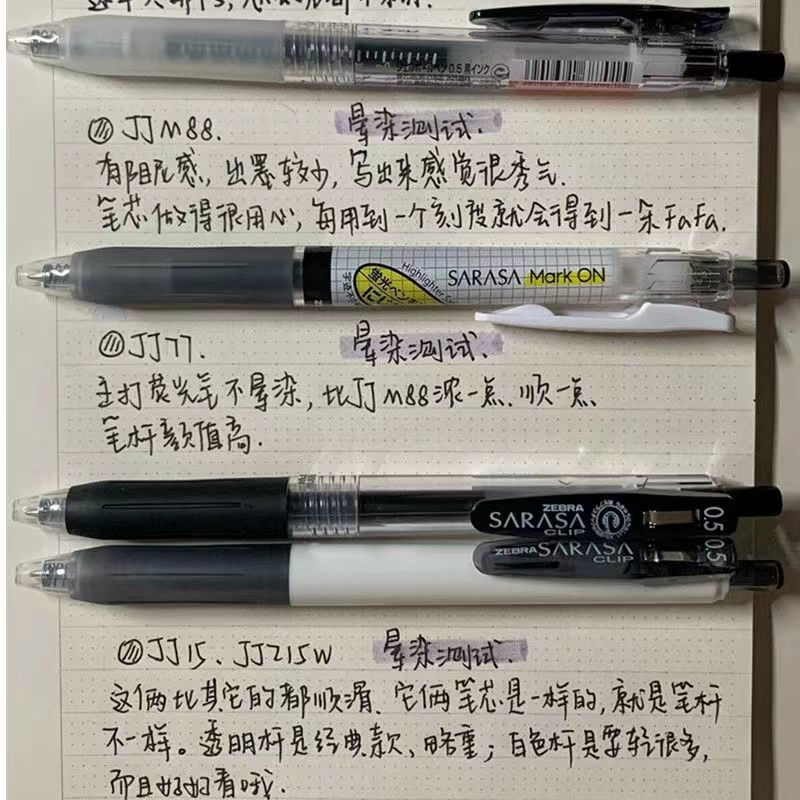 ジェルボールペン 0.5 黒インク
JJM88. 晕染测试.
有阻尼感, 出墨较少, 写出来感觉很秀气.
笔芯做得很用心, 每用到一个刻度就会得到一朵FaFa.
Highlighter
蛍光ペン
SARASA Mark ON
JJ77. 晕染测试.
主打荧光笔不晕染, 比JJM88浓一点. 顺一点.
笔杆颜值高.
ZEBRA
SARASA
CLIP
0.5
ZEBRA SARASA
CLIP
0.5
JJ15. JJZ15W 晕染测试.
这俩比其它的都顺滑. 它俩笔芯是一样的, 就是笔杆
不一样。透明杆是经典款、略重; 白色杆是要轻很多,
而且好好看哦.